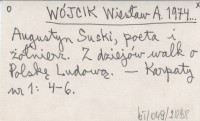 WÓJCIK Wiesław A. 1974...
Augustyn Suski, poeta i
żołnierz. Z dziejów walk o
Polskę Ludową. — Karpaty
nr 1: 4-6.